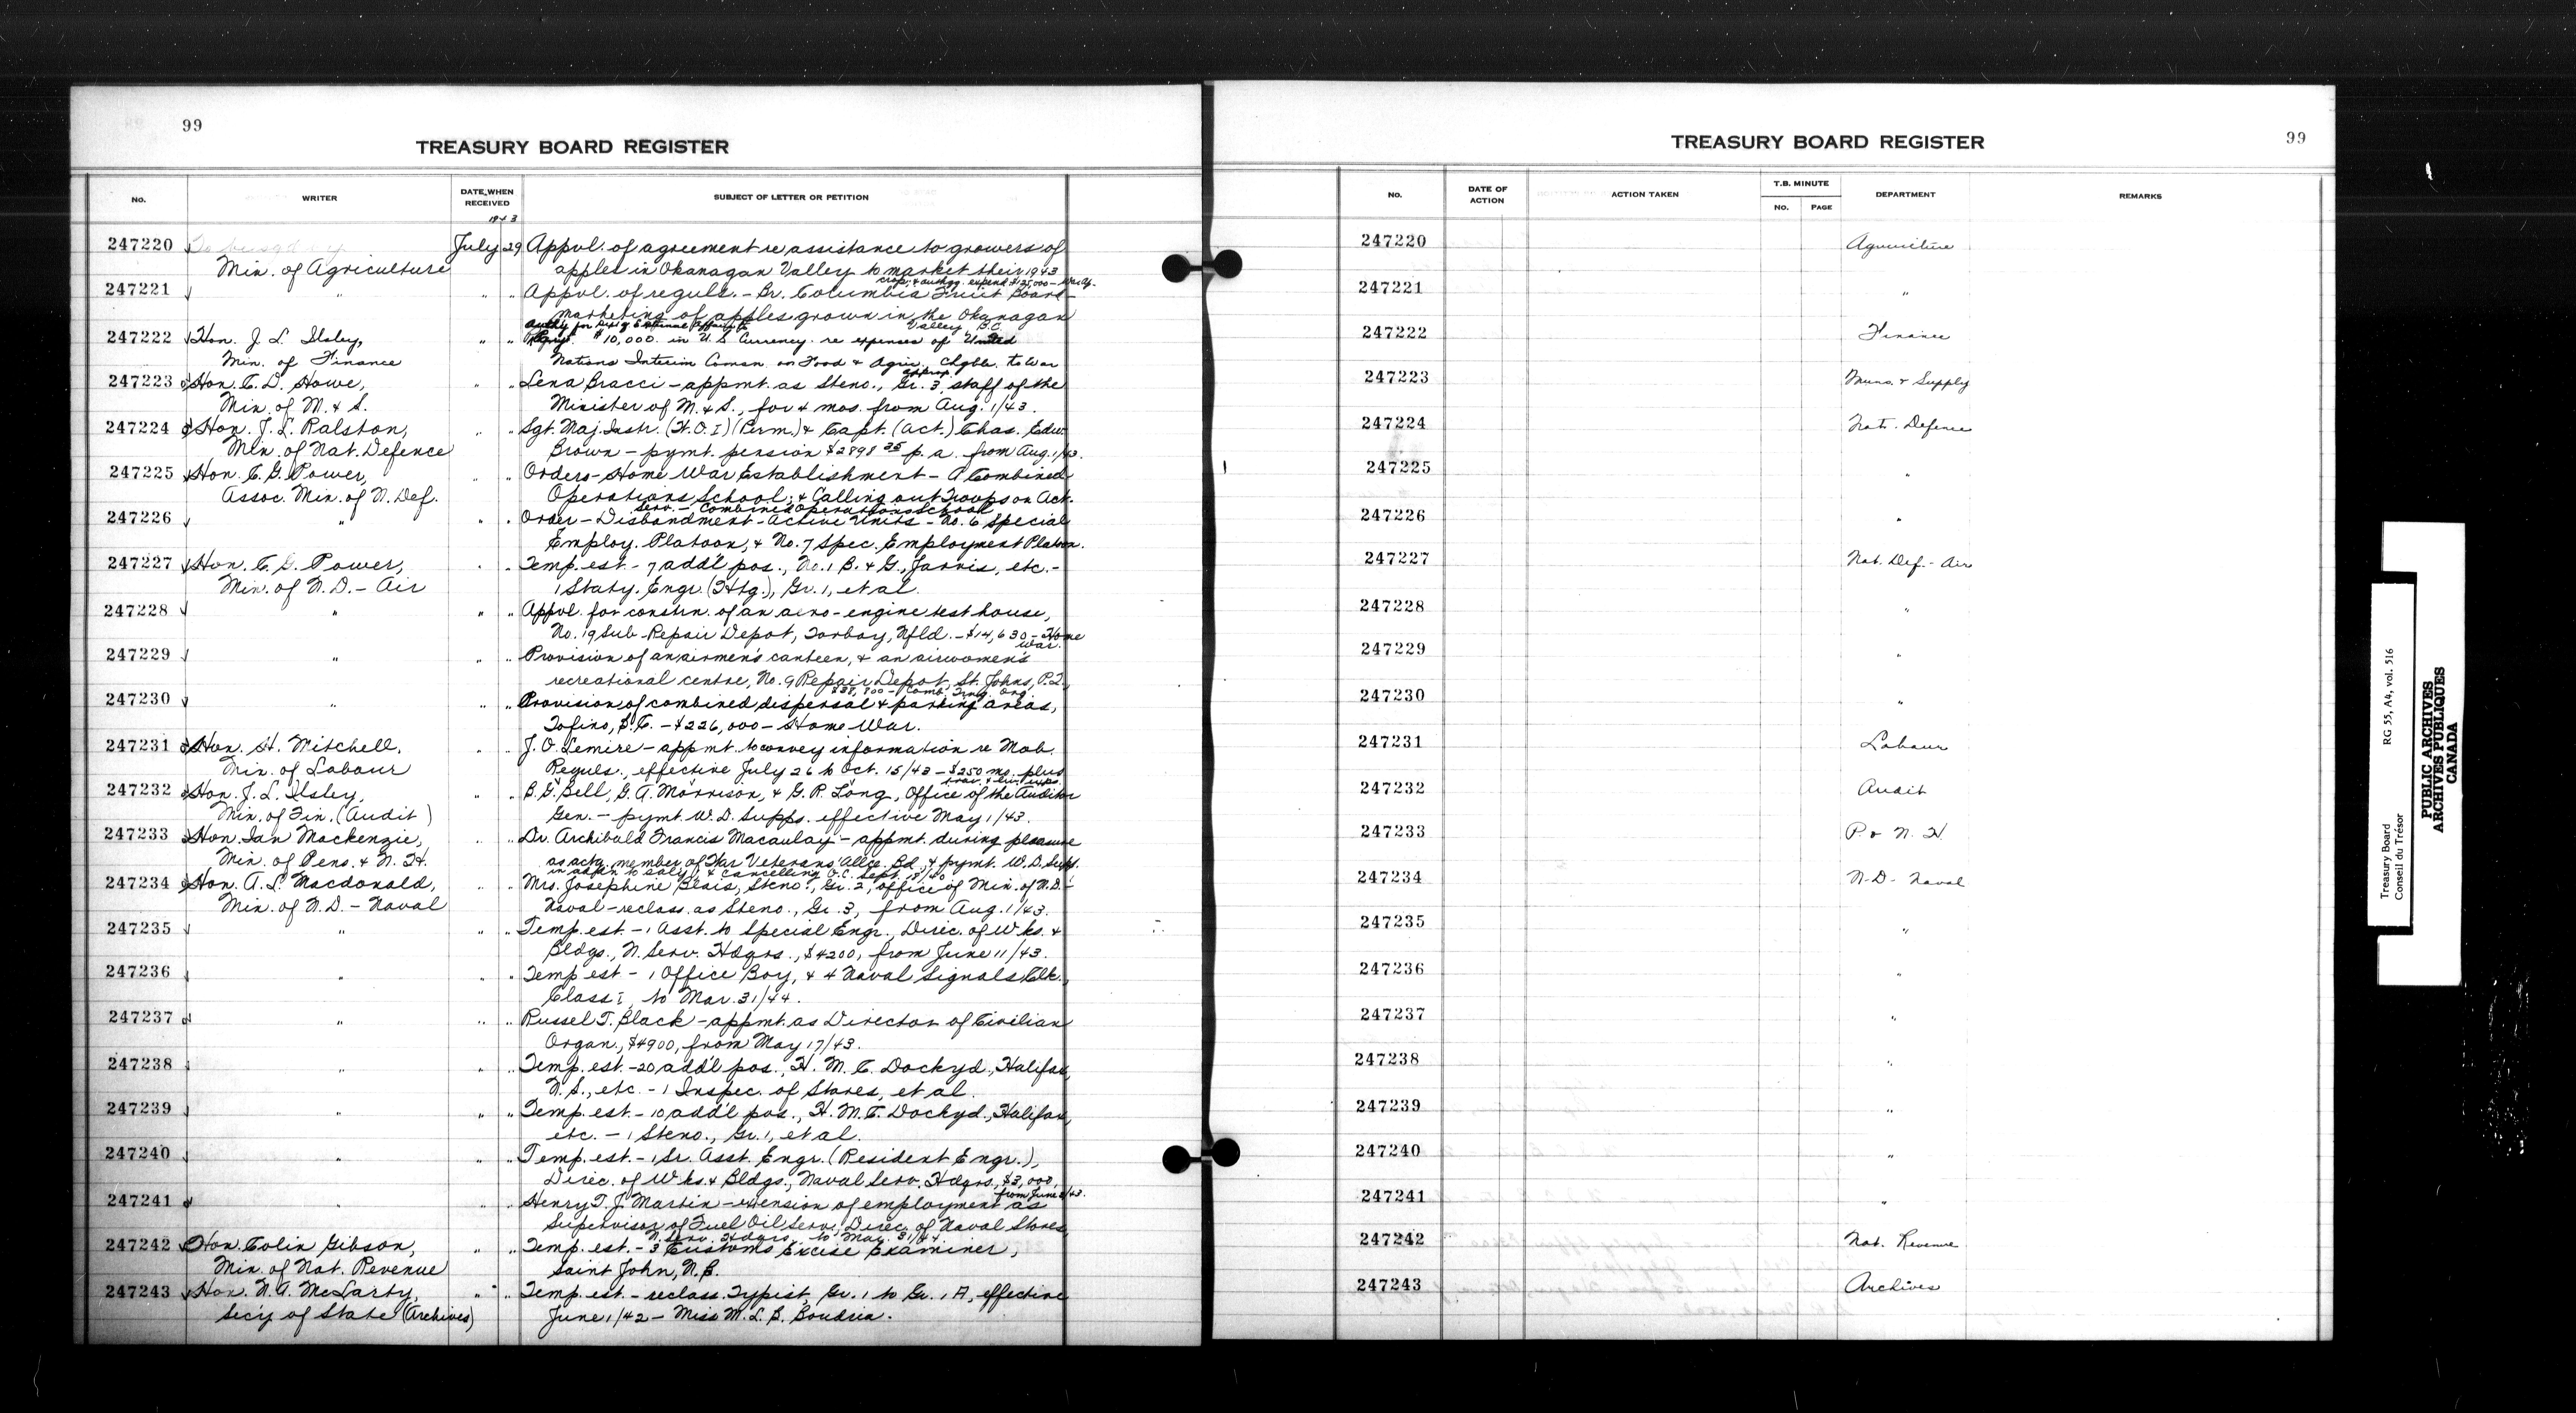 99
TREASURY BOARD REGISTER
No. WRITER DATE WHEN RECEIVED SUBJECT OF LETTER OR PETITION
1943
247220 July 29 Appvl. of agreement re assistance to growers of
Min. of Agriculture apples in Okanagan Valley to market their 1943
crop, & authy. expend. $125,000 -
247221 " " " Appvl. of reguls. - Br. Columbia Fruit Board -
marketing of apples grown in the Okanagan
Valley B.C.
247222 Hon. J. L. Ilsley, " " Authy for Dept of External Affairs to
$10,000. in U.S Currency. re expenses of United
Min. of Finance Nations Interim Comsn. on Food & Agric. Chgble. to War
approp.
247223 Hon. C. D. Howe, " " Lena Bracci - appmt. as Steno., Gr. 3, staff of the
Min. of M. & S. Minister of M. & S., for 4 mos. from Aug. 1/43.
247224 Hon. J. L. Ralston, " " Sgt. Maj. Instr. (W.O.I) (Perm.) & Capt. (Act.) Chas. Edw.
Min. of Nat. Defence Brown - pymt. pension $2898 35 p.a. from Aug. 1/43.
247225 Hon. C. G. Power, " " Orders - Home War Establishment - A Combined
Assoc. Min. of N. Def. Operations School; & Calling out Troops on Act.
Serv. - Combined Operations School
247226 " " " Order - Disbandment - Active Units - No. 6 Special
Employ. Platoon, & No. 7 Spec. Employment Platoon.
247227 Hon. C. G. Power, " " Temp. est. - 7 add'l pos., No. 1 B. & G., Jarvis, etc. -
Min. of N. D. - Air 1 Staty. Engr. (Htg.), Gr. 1, et al.
247228 " " " Appvl. for constrn. of an aero-engine test house,
No. 19 Sub-Repair Depot, Torbay, Nfld. - $14,630 - Home
War.
247229 " " " Provision of an airmen's canteen, & an airwomen's
recreational centre, No. 9 Repair Depot, St. Johns, P.Q.
$38,800 - Comb. Trng. Org.
247230 " " " Provision of combined dispersal & parking areas,
Tofino, B.C. - $226,000 - Home War.
247231 Hon. H. Mitchell, " " J. O. Lemire - appmt. to convey information re Mob.
Min. of Labour Reguls., effective July 26 to Oct. 15/43 - $250 mo. plus
trav. & liv. exps.
247232 Hon. J. L. Ilsley, " " B. G. Bell, G. A. Morrison, & G. P. Long, Office of the Auditor
Min. of Fin. (Audit) Gen. - pymt. W. D. Supps. effective May 1/43.
247233 Hon. Ian Mackenzie, " " Dr. Archibald Francis Macaulay - appmt. during pleasure
Min. of Pens. & N. H. as actg. member of War Veterans' Allce. Bd., & pymt. W. D. Supp.
in addtn to saly., & cancelling O.C. Sept. 18/40
247234 Hon. A. L. Macdonald, " " Mrs. Josephine Blais, Steno., Gr. 2, office of Min. of N.D. -
Min. of N. D. - Naval Naval - reclass. as Steno., Gr. 3, from Aug. 1/43.
247235 " " " Temp. est. - 1 Asst. to Special Engr., Direc. of Wks. &
Bldgs., N. Serv. Hdqrs., $4200, from June 11/43.
247236 " " " Temp. est. - 1 Office Boy, & 4 Naval Signals Clk.
Class I, to Mar. 31/44.
247237 " " " Russel T. Black - appmt. as Director of Civilian
Organ., $4900, from May 17/43.
247238 " " " Temp. est. - 20 add'l pos., H. M. C. Dockyd., Halifax,
N. S., etc. - 1 Inspec. of Stores, et al.
247239 " " " Temp. est. - 10 add'l pos., H. M. C. Dockyd., Halifax,
etc. - 1 Steno., Gr. 1, et al.
247240 " " " Temp. est. - 1 Sr. Asst. Engr. (Resident Engr.),
Direc. of Wks. & Bldgs., Naval Serv. Hdqrs., $3,000,
247241 " " " Henry T. J. Martin - extension of employment as
Supervisor of Fuel Oil Serv., Direc. of Naval Stores,
N. Serv. Hdqrs., to Mar. 31/44.
247242 Hon. Colin Gibson, " " Temp. est. - 3 Customs Excise Examiner,
Min. of Nat. Revenue Saint John, N.B.
247243 Hon. N. A. McLarty, " " Temp. est. - reclass. Typist, Gr. 1 to Gr. 1A, effective
Sec'y of State (Archives) June 1/42 - Miss M. L. B. Boudria.
TREASURY BOARD REGISTER
99
No. DATE OF ACTION ACTION TAKEN T.B. MINUTE No. PAGE DEPARTMENT REMARKS
247220 Agriculture
247221 "
247222 Finance
247223 Muns. & Supply
247224 Nat. Defence
247225 "
247226 "
247227 Nat. Def. - Air
247228 "
247229 "
247230 "
247231 Labour
247232 Audit
247233 P. & N. H.
247234 N-D- Naval
247235 "
247236 "
247237 "
247238 "
247239 "
247240 "
247241 "
247242 Nat. Revenue
247243 Archives
Treasury Board RG 55, A4, vol. 516
Conseil du Trésor
PUBLIC ARCHIVES
ARCHIVES PUBLIQUES
CANADA